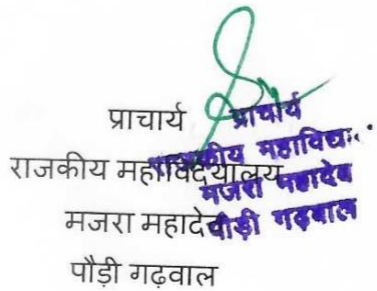 प्राचार्य
राजकीय महाविद्यालय
मजरा महादेव
पौड़ी गढ़वाल
प्राचार्य
राजकीय महाविद्या
मजरा महादेव
पौड़ी गढ़वाल